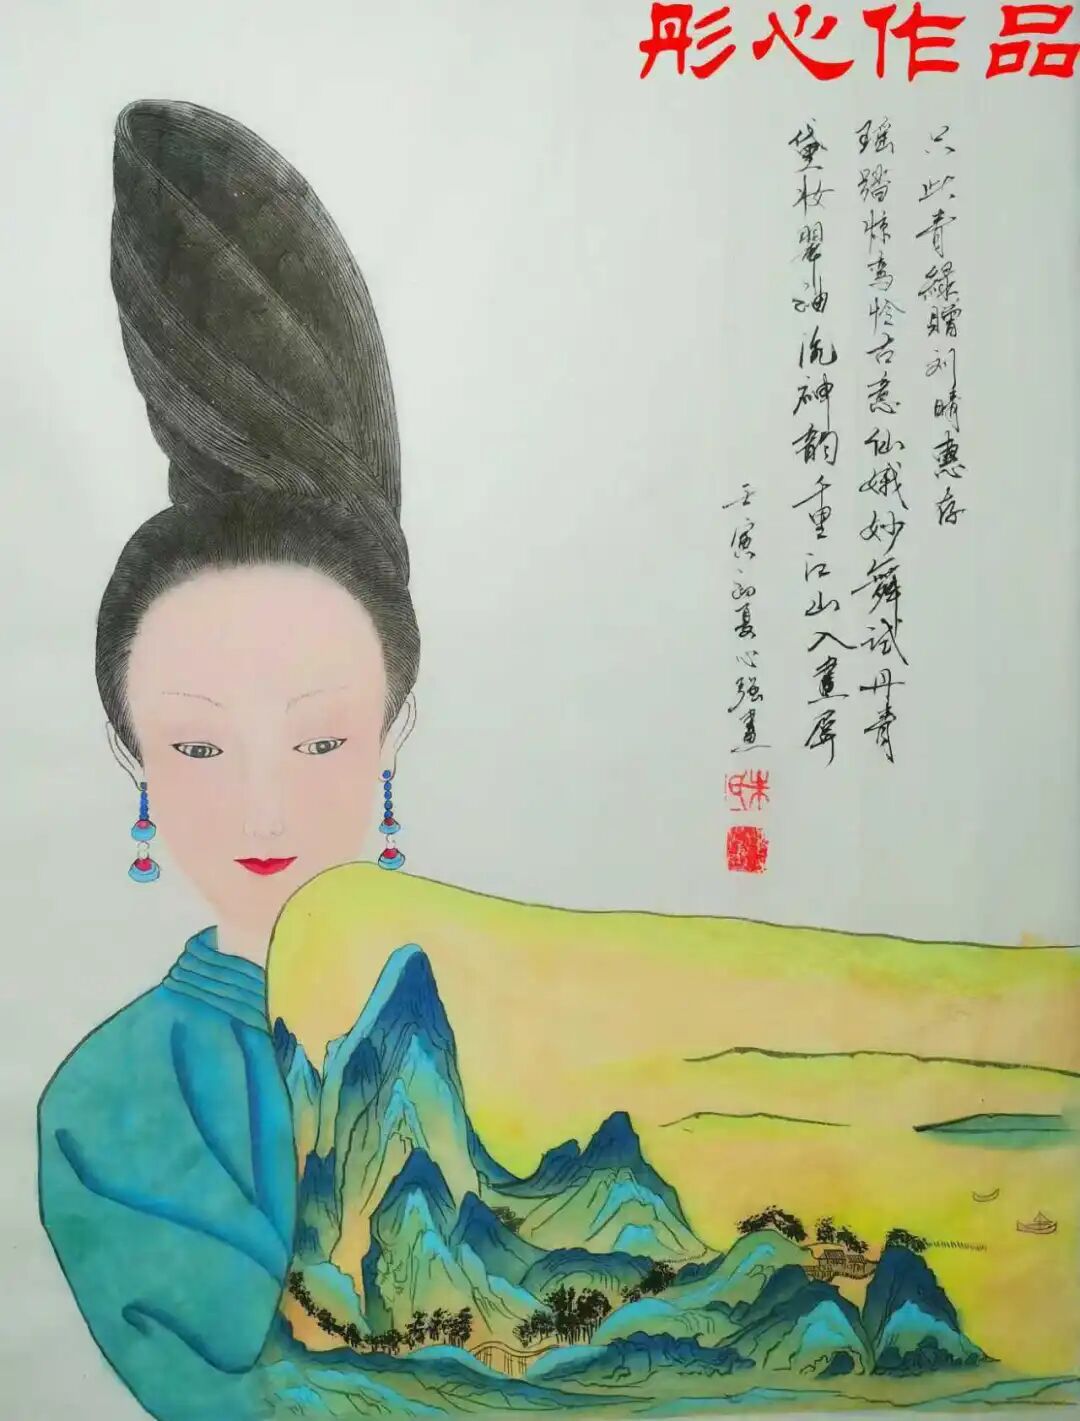 彤心作品
只此青緑贈刘晴惠存
瑶踏惊鸾怜古意仙娥妙舞试丹青
黛妆翠袖流神韵千里江山入畫屏
壬寅初夏心强畫